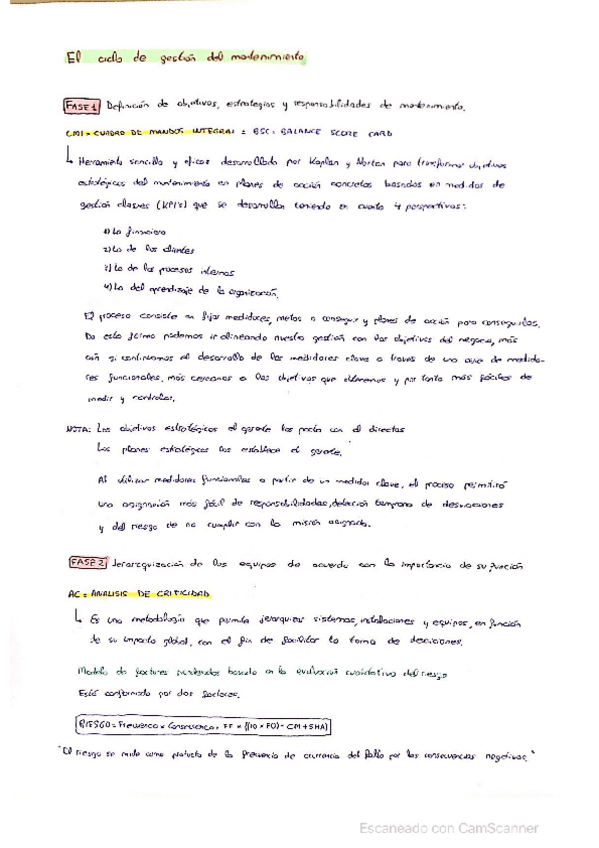 El ciclo de gestión del mantenimiento
FASE 1 Definición de objetivos, estrategias y responsabilidades de mantenimiento.
CMI = CUADRO DE MANDOS INTEGRAL = BSC: BALANCE SCORE CARD
Herramienta sencilla y eficaz desarrollada por Kaplan y Norton para transformar objetivos
estratégicos del mantenimiento en planes de acción concretos basados en medidas de
gestión claves (KPI's) que se desarrollan teniendo en cuenta 4 perspectivas:
1) La financiera
2) La de los clientes
3) La de los procesos internos
4) La del aprendizaje de la organización.
El proceso consiste en fijar medidores, metas a conseguir y planes de acción para conseguirlas.
De esta forma podemos ir alineando nuestra gestión con los objetivos del negocio, más
aún si continuamos al desarrollo de los medidores clave a través de una de medido-
res funcionales, más cercanos a los objetivos que y por tanto más fáciles de
medir y controlar.
NOTA: Los objetivos estratégicos el gerente los pacta con el directas
Los planes estratégicos los establece el gerente.
Al utilizar medidores funcionales a partir de un medidor clave, el proceso permitirá
una asignación más fácil de responsabilidades, detección temprana de desviaciones
y del riesgo de no cumplir con la misión asignada.
FASE 2 Jerarquización de los equipos de acuerdo con la importancia de su función
AC = ANALISIS DE CRITICIDAD
Es una metodología que permite jerarquizar sistemas, instalaciones y equipos, en función
de su impacto global, con el fin de facilitar la toma de decisiones.
Modelo de factores ponderados basado en la evaluación cualitativa del riesgo
Está conformado por dos factores.
RIESGO = Frecuencia x Consecuencia = FF x [(IO x FO) + CM + SHA]
"El riesgo se mide como producto de la frecuencia de ocurrencia del fallo por las consecuencias negativas."
Escaneado con CamScanner